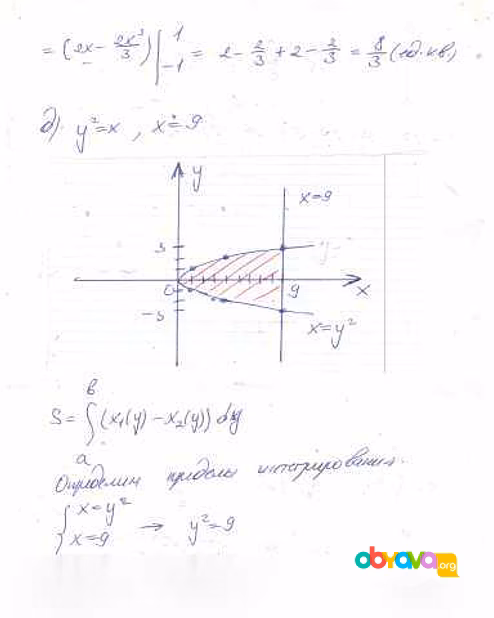 = (2x - 2x³/3) |₋₁¹ = 2 - 2/3 + 2 - 2/3 = 8/3 (ед.кв)
д). y²=x , x=9
y
x=9
3
y=
0
9
x
-3
x=y²
S = ∫ₐᵇ (x₁(y) - x₂(y)) dy
Определим пределы интегрирования.
{ x=y²
x=9 → y²=9
obrava.org